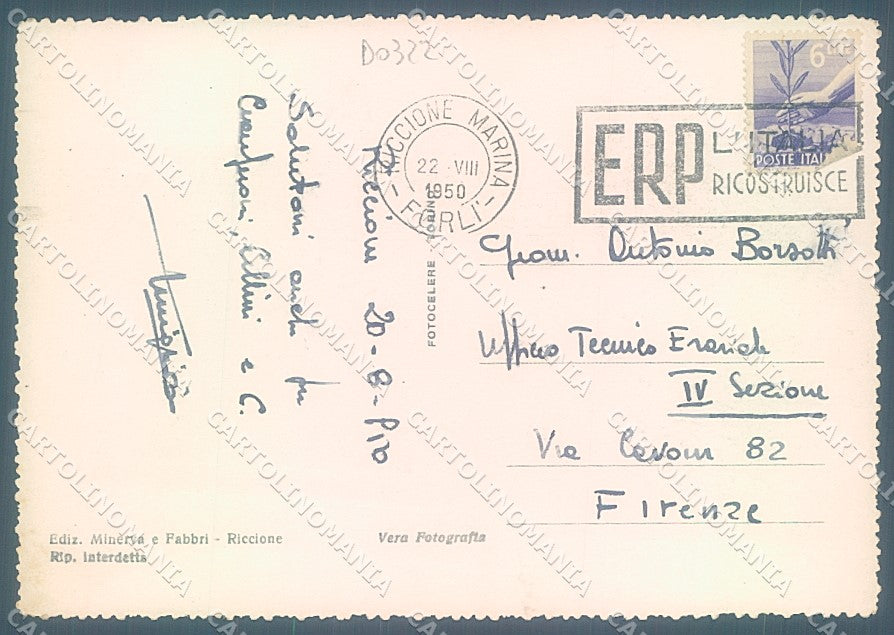 D0322
RICCIONE MARINA
22 · VIII
1950
- FORLI' -
ERP
L'ITALIA
RICOSTRUISCE
6
POSTE ITAL
Riccione 20-8-
Salutoni anche per
e C.
Geom. Antonio Borsotti
Ufficio Tecnico Erariale
IV Sezione
Via Cavour 82
Firenze
FOTOCELERE TORINO
Ediz. Minerva e Fabbri - Riccione
Rip. interdetta
Vera Fotografia
CARTOLINOMANIA